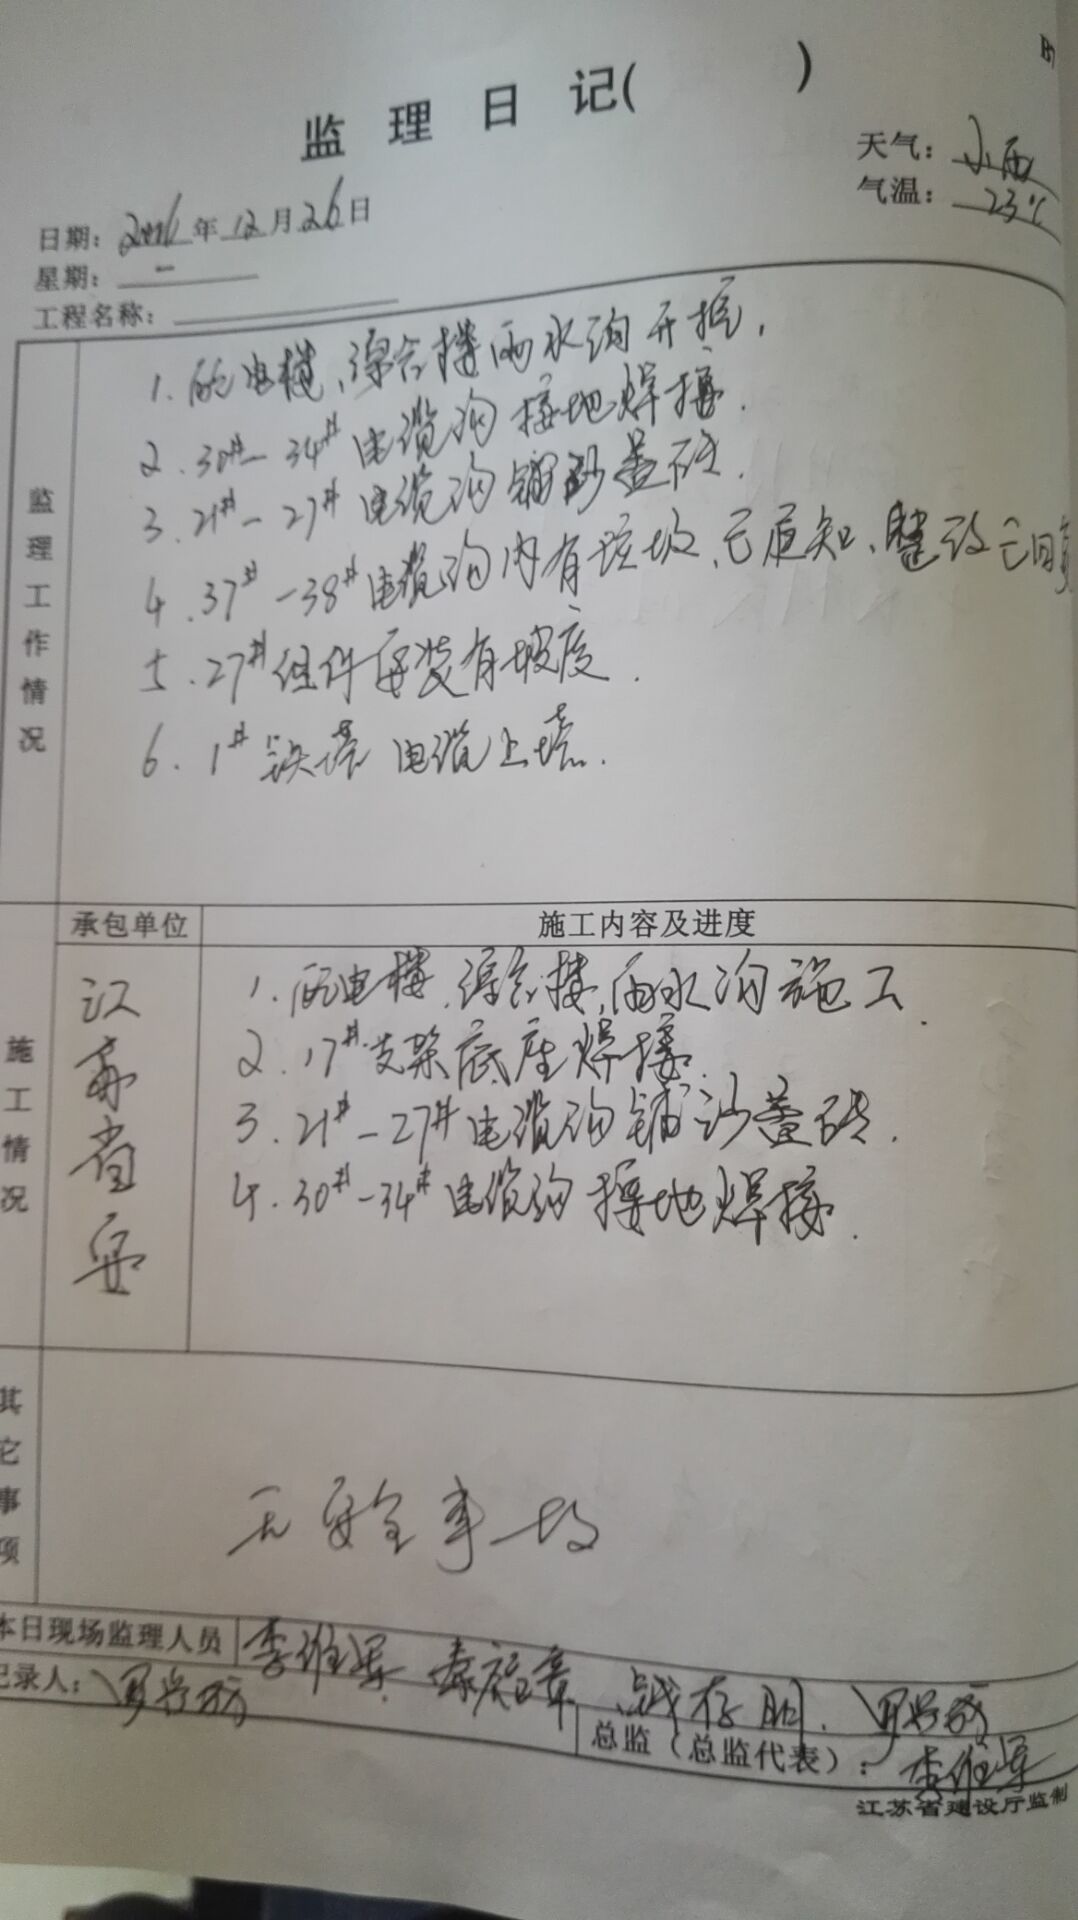 监理日记( )
天气：小雨
气温：23℃
日期：2016年12月26日
星期：一
工程名称：
监理工作情况
1. 配电楼、综合楼雨水沟开挖,
2. 30#-34#电缆沟接地焊接.
3. 21#-27#电缆沟铺砂盖砖.
4. 37#-38#电缆沟内有垃圾、已通知、整改已
5. 27#组件安装有坡度.
6. 1#铁塔 电缆上塔.
承包单位 施工内容及进度
施工情况
江苏省安
1. 配电楼、综合楼,雨水沟施工.
2. 17#支架底座焊接.
3. 21#-27#电缆沟铺沙盖砖.
4. 30#-34#电缆沟接地焊接.
其它事项
无安全事故
本日现场监理人员 李维军、秦福章、存
记录人：
总监（总监代表）：李维军
江苏省建设厅监制